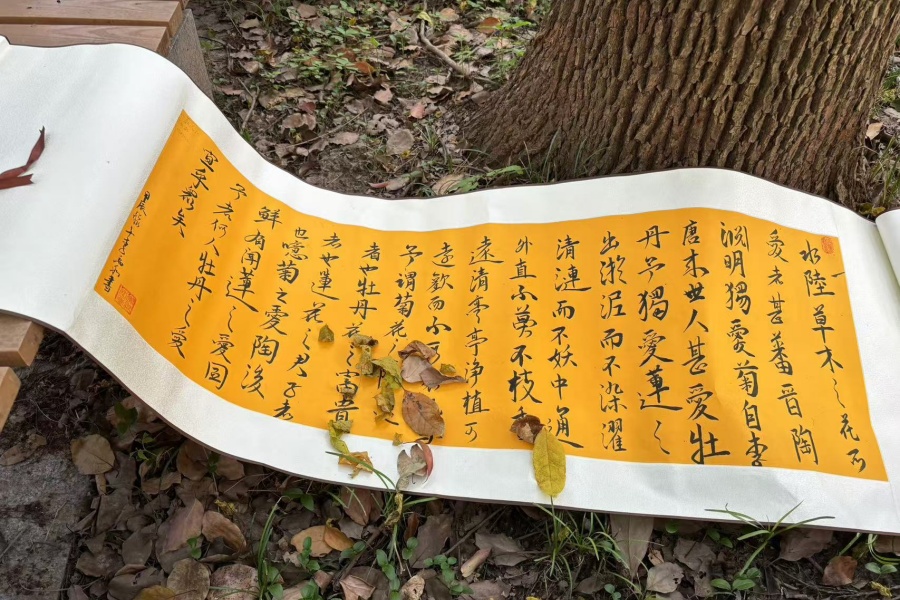 水陸草木之花可
愛者甚蕃晋陶
渊明獨愛菊自李
唐来世人甚愛牡
丹予獨愛蓮之
出淤泥而不染濯
清漣而不妖中通
外直不蔓不枝
遠清亭亭净植可
遠而不可
予謂菊花
者也牡丹花之富貴
者也蓮花之君子者
也噫菊之愛陶後
鮮有聞蓮之愛同
予者何人牡丹之愛
宜乎衆矣
甲辰書